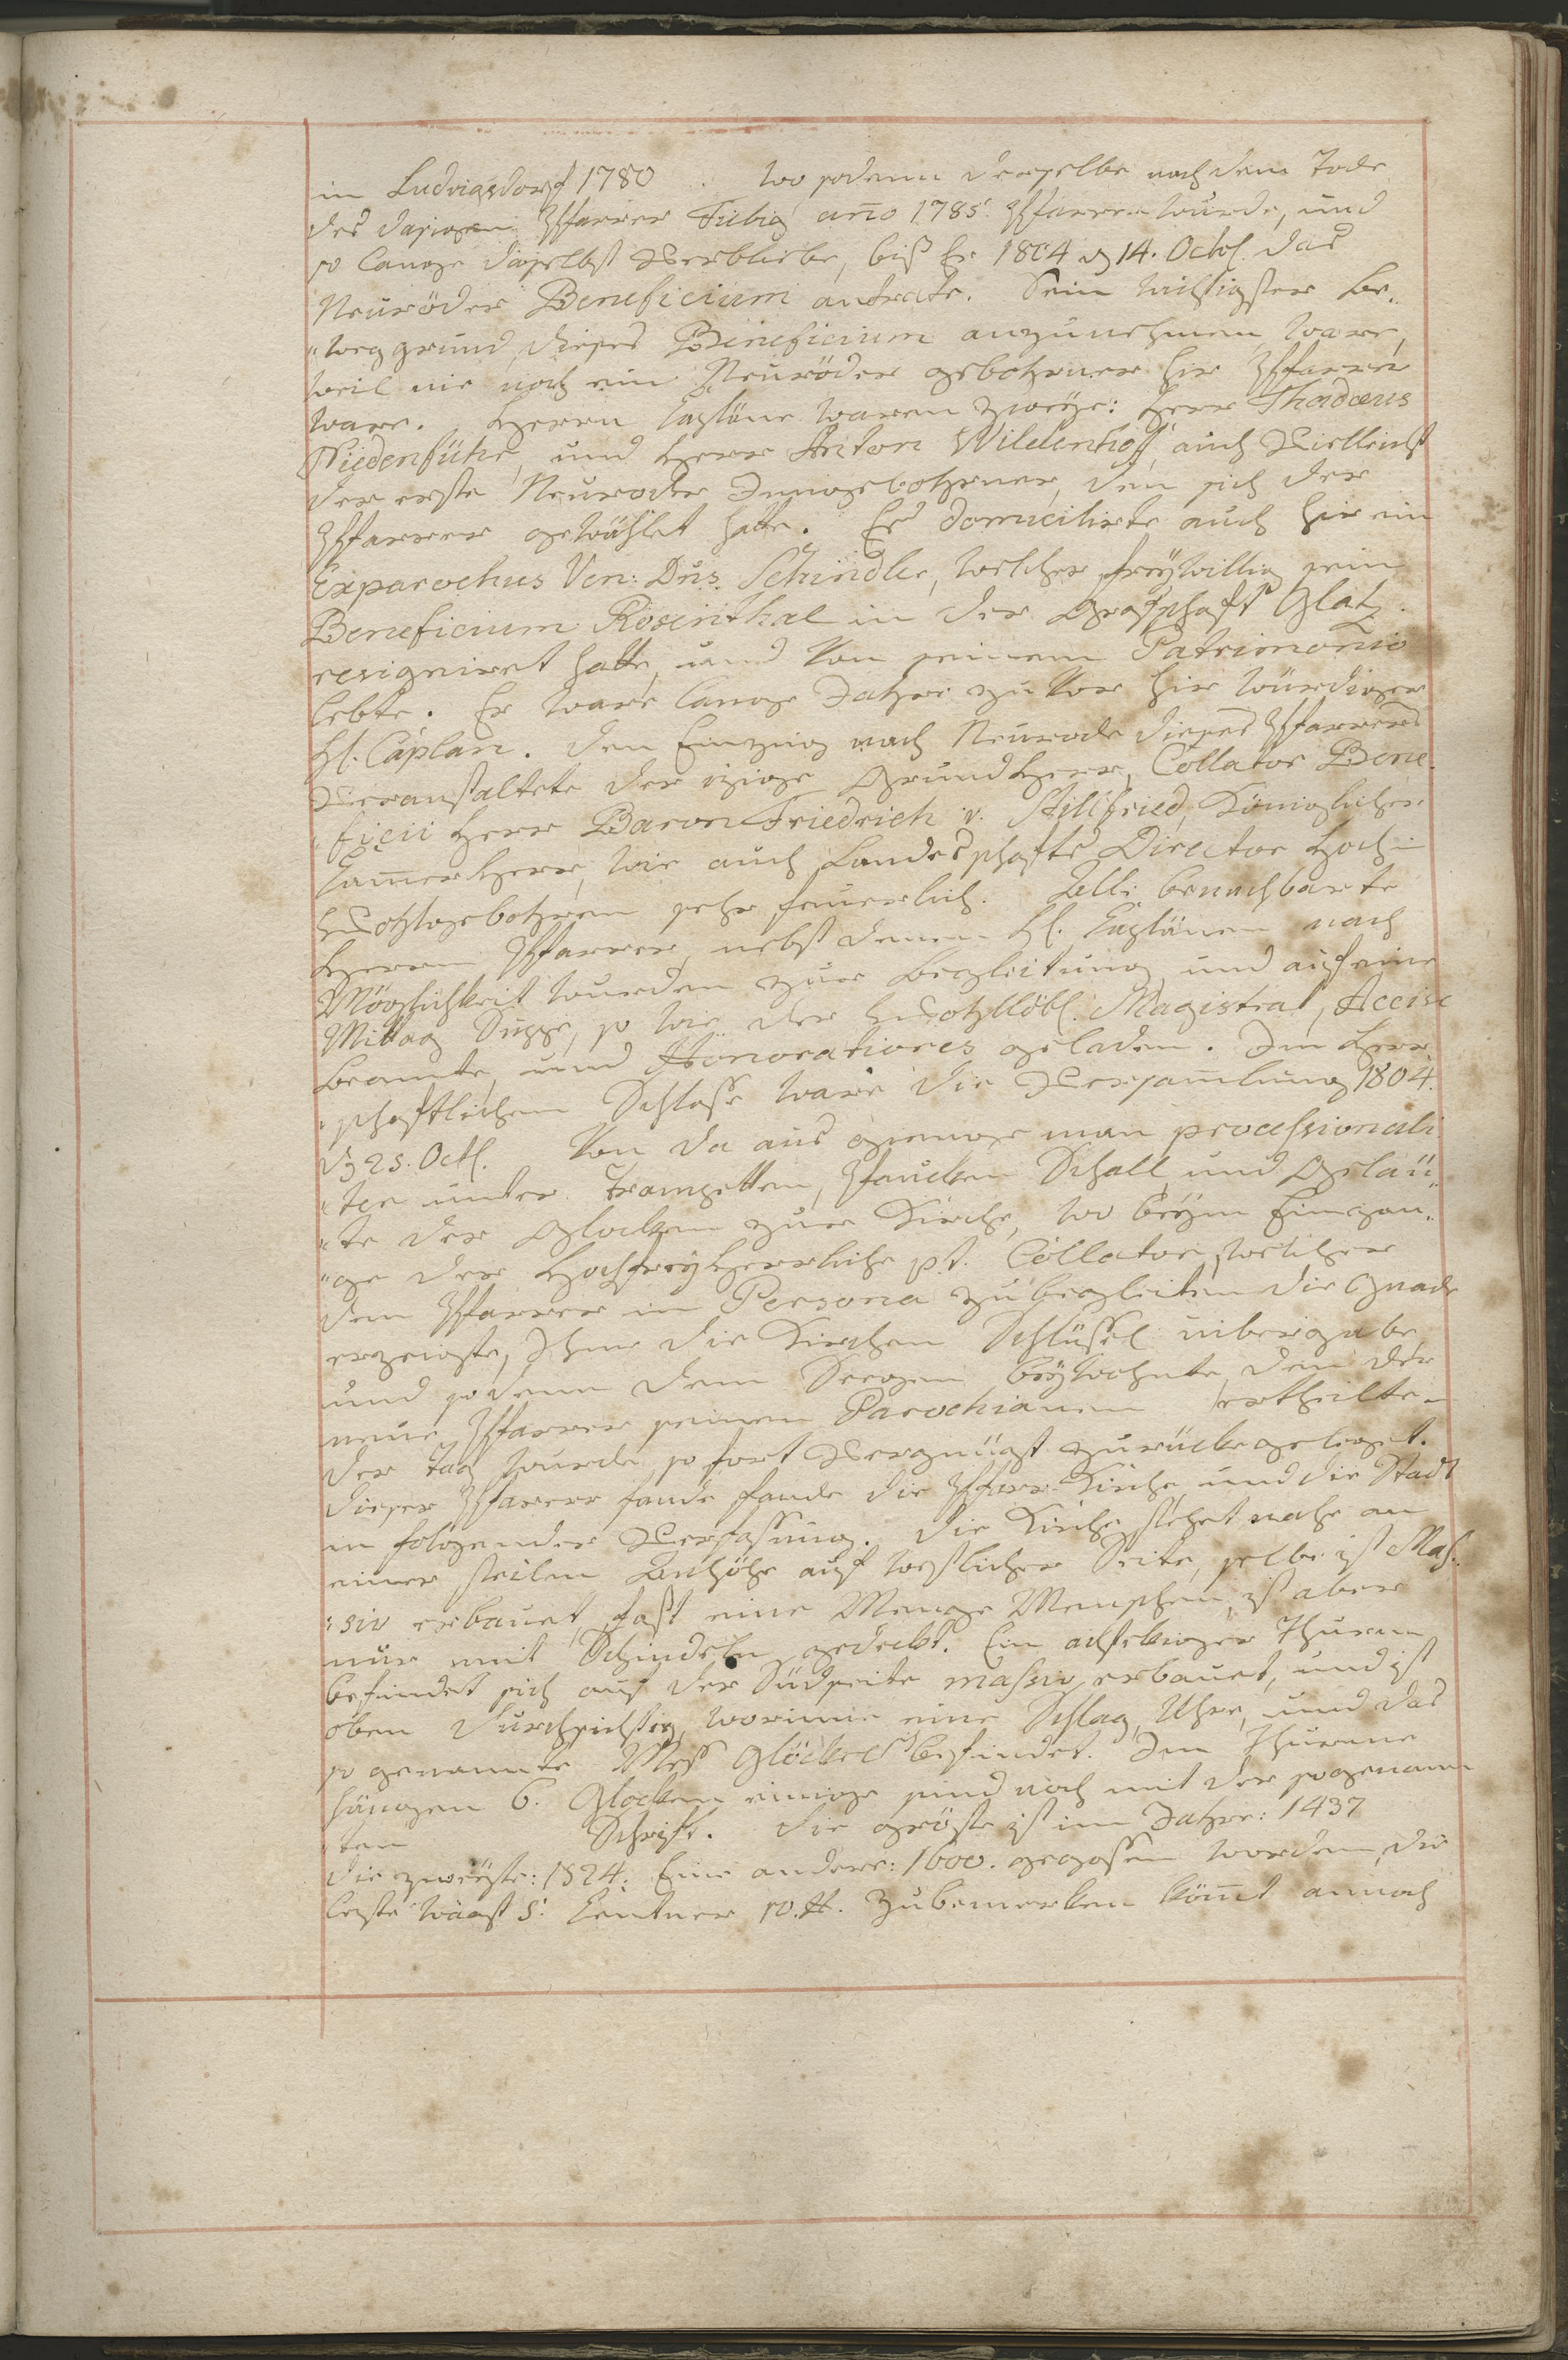 in Ludvigsdorf 1780 . wo sodenn derselbe nach dem Tode
des dasigen Pfarrer Fiebig año 1785. Pfarrer wurde, und
so lange daselbst Verbliebe, biß Er 1804 d 14. Octob. das
Neuröder Beneficium antrate. Sein wichtigster Be„
„weggrund dieses Beneficium anzunehmen ware,
weil nie noch ein Neuröder gebohrner hir Pfarrer
ware. Herrn Capläne waren zweye: Herr Thadæus
Niedenführ, und Herr Anton Wildenhoff, auch Vielleicht
der erste Neuroder Inngebohrner, den sich der
Pfarrer gewählet hatte. Es domicilirte auch hir ein
Exparochus Ven: Dñs. Schindler, welcher freywillig sein
Beneficium Rosenthal in der Grafschaft Glatz
resigniret hatte, und Von seinem Patrimonio
lebte. Er ware lange Jahre zuVor hir würdiger
H. Caplan. Den Einzug nach Neurode dieses Pfarrers
Veranstaltete der izige Grundherr, Collator Bene„
„ficii Herr Baron Friedrich v. Stillfried, Königlicher
Camerherr, wie auch Landesschafts Director Hoch
Wohlgebohren sehr feuerlich. Alle benachbarte
Herrn Pfarrer, nebst denen H. Caplänen nach
Möglichkeit wurden zur Begleitung und auf eine
Mittag Suppe, so wie der Wohllöbl. Magistrat, Accise
Beamte, und Honoratiores geladen. Im Herr
„schaftlichem Schloße ware die Versam̄lung 1804.
d 25. Octb. Von da aus gienge man processionali
„ter unter Trompetten, Paucken Schall und Geläu„
„te der Glocken zur Kirche, wo beym Eingan„
„ge der Hochfreyherrliche p.t. Collator, welcher
den Pfarrer in Persona zu begleiten die Gnade
erzeigte, Ihme die Kirchen Schlüßel übergabe,
und sodenn dem Seegen beywohnte, den der
neue Pfarrer seinen Parochianen ertheilte.
Der Tag wurde sofort Vergnügt zurückgeleget.
Dieser Pfarrer fande fande die Pfarr-Kirche und die Stadt
in folgender Verfaßung. Die Kirche stehet nahe an
einer steilen Anhöhe auf westlicher Seite, selbe ist Maß„
„siv erbauet, faßt eine Menge Menschen, ist aber
nur mit Schindeln gedeckt. Ein achtekiger Thurm
befindet sich auf der Südseite maßiv erbauet, und ist
oben durchsichtig, worinne eine Schlag Uhre, und das
so genannte Meß Glöckel befindet. Im Thurme
hängen 6. Glocken einige sind noch mit der sogenann
„ten Schrift. Die größte ist im Jahre: 1437
die zweyte: 1524. Eine andere: 1600. gegossen worden, die
letzte wägt 5. Centner 10. ℔. Zu bemerken köm̄t annoch